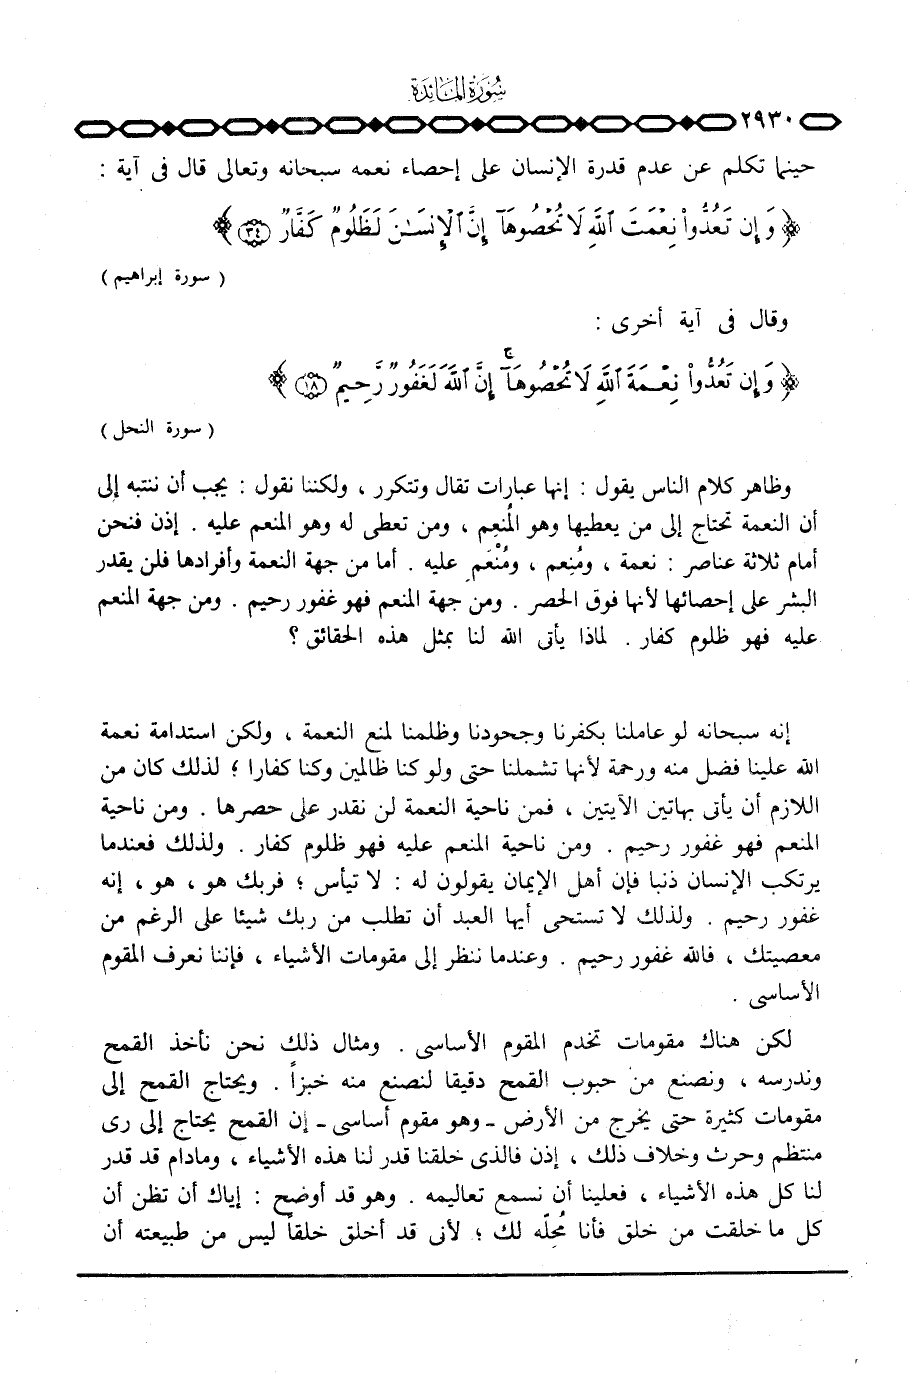 سُورَةُ المَائدَة
٢٩٣٠
حينما تكلم عن عدم قدرة الإنسان على إحصاء نعمه سبحانه وتعالى قال فى آية :
﴿ وَإِن تَعُدُّوا۟ نِعْمَتَ ٱللَّهِ لَا تُحْصُوهَآ إِنَّ ٱلْإِنسَٰنَ لَظَلُومٌ كَفَّارٌ ٣٤ ﴾
( سورة إبراهيم )
وقال فى آية أخرى :
﴿ وَإِن تَعُدُّوا۟ نِعْمَةَ ٱللَّهِ لَا تُحْصُوهَآ ۚ إِنَّ ٱللَّهَ لَغَفُورٌ رَّحِيمٌ ١٨ ﴾
( سورة النحل )
وظاهر كلام الناس يقول : إنها عبارات تقال وتتكرر ، ولكننا نقول : يجب أن ننتبه إلى
أن النعمة تحتاج إلى من يعطيها وهو المُنعِم ، ومن تعطى له وهو المنعم عليه . إذن فنحن
أمام ثلاثة عناصر : نعمة ، ومُنعِم ، ومُنْعَم عليه . أما من جهة النعمة وأفرادها فلن يقدر
البشر على إحصائها لأنها فوق الحصر . ومن جهة المنعم فهو غفور رحيم . ومن جهة المنعم
عليه فهو ظلوم كفار . لماذا يأتى الله لنا بمثل هذه الحقائق ؟
إنه سبحانه لو عاملنا بكفرنا وجحودنا وظلمنا لمنع النعمة ، ولكن استدامة نعمة
الله علينا فضل منه ورحمة لأنها تشملنا حتى ولو كنا ظالمين وكنا كفارا ؛ لذلك كان من
اللازم أن يأتى بهاتين الآيتين ، فمن ناحية النعمة لن نقدر على حصرها . ومن ناحية
المنعم فهو غفور رحيم . ومن ناحية المنعم عليه فهو ظلوم كفار . ولذلك فعندما
يرتكب الإنسان ذنبا فإن أهل الإيمان يقولون له : لا تيأس ؛ فربك هو ، هو ، إنه
غفور رحيم . ولذلك لا تستحى أيها العبد أن تطلب من ربك شيئا على الرغم من
معصيتك ، فالله غفور رحيم . وعندما ننظر إلى مقومات الأشياء ، فإننا نعرف المقوم
الأساسى .
لكن هناك مقومات تخدم المقوم الأساسى . ومثال ذلك نحن نأخذ القمح
وندرسه ، ونصنع من حبوب القمح دقيقا لنصنع منه خبزاً . ويحتاج القمح إلى
مقومات كثيرة حتى يخرج من الأرض ـ وهو مقوم أساسى ـ إن القمح يحتاج إلى رى
منتظم وحرث وخلاف ذلك ، إذن فالذى خلقنا قدر لنا هذه الأشياء ، ومادام قد قدر
لنا كل هذه الأشياء ، فعلينا أن نسمع تعاليمه . وهو قد أوضح : إياك أن تظن أن
كل ما خلقت من خلق فأنا مُحِلّه لك ؛ لأنى قد أخلق خلقاً ليس من طبيعته أن